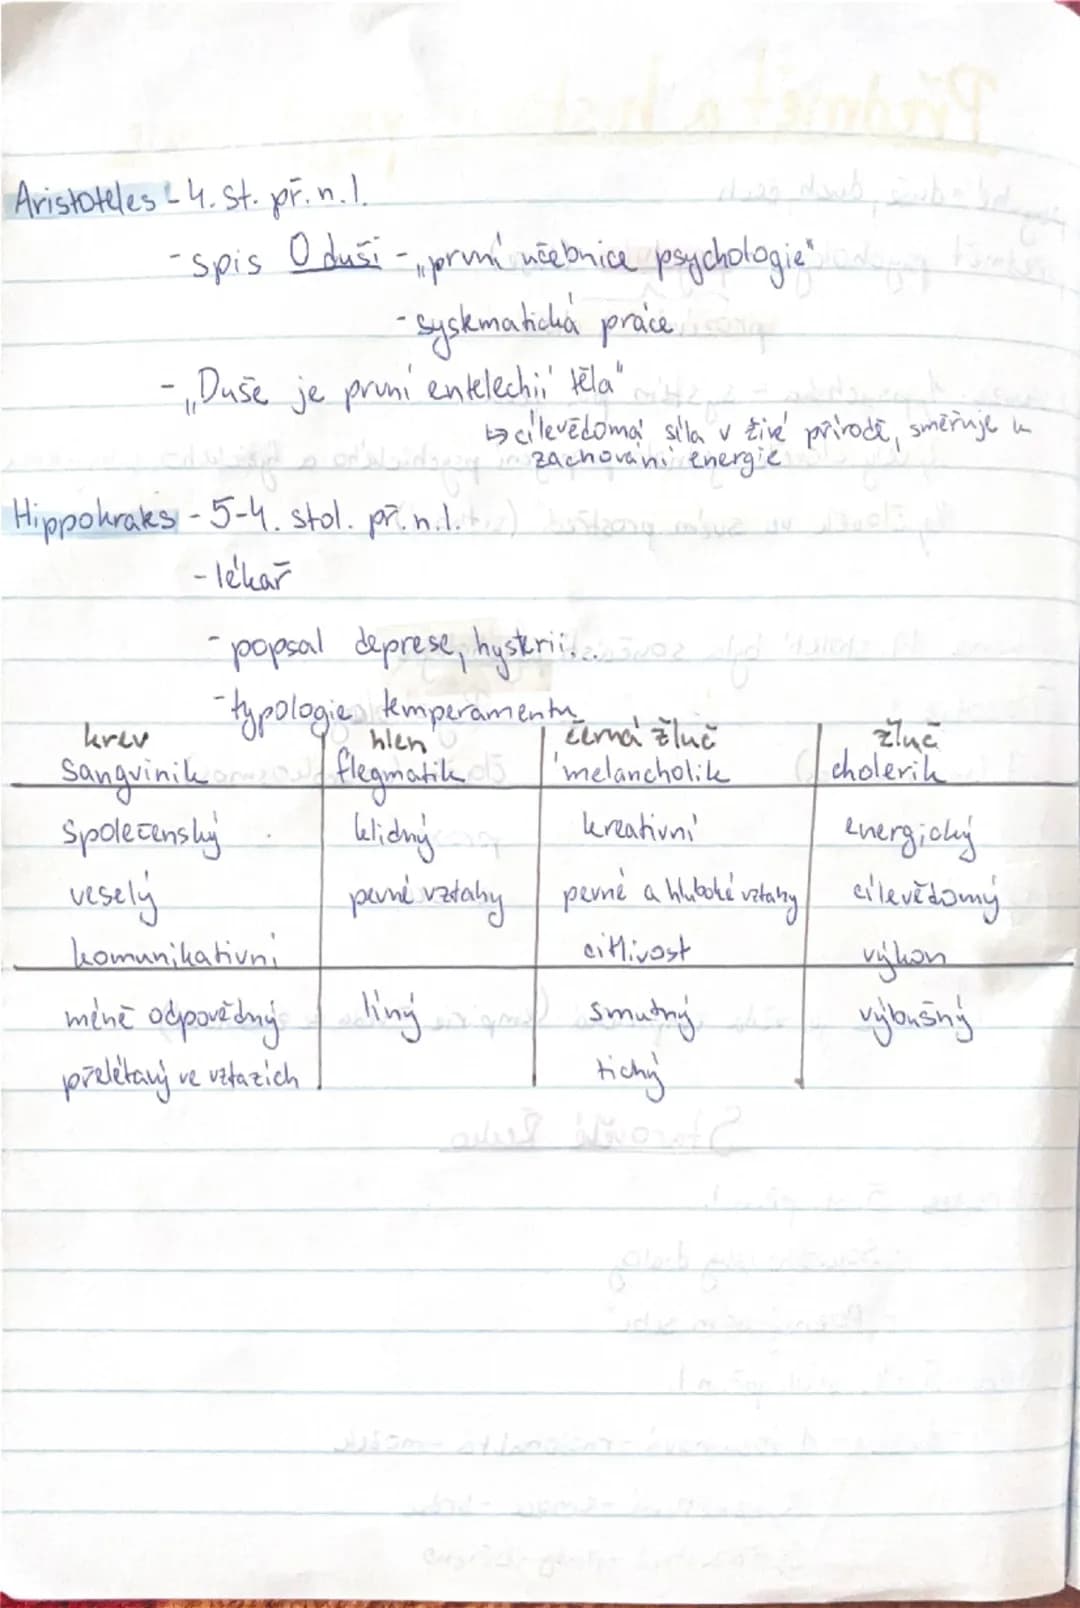 Aristoteles - 4. st. př. n. l.
- spis O duši - „první učebnice psychologie"
- systematická práce
- „Duše je první entelechií těla"
↳ cílevědomá síla v živé přírodě, směřuje k
zachování energie
Hippokrates - 5-4. stol. př. n. l.
- lékař
- popsal deprese, hysterii...
- typologie temperamentu
krev hlen černá žluč žluč
Sangvinik flegmatik melancholik cholerik
společenský klidný kreativní energický
veselý pevné vztahy pevné a hluboké vztahy cílevědomý
komunikativní citlivost výkon
méně odpovědný líný smutný výbušný
přelétavý ve vztazích tichý